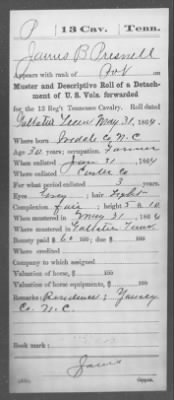 P | 13 Cav. | Tenn.
James B Presnell
Appears with rank of Pvt on
Muster and Descriptive Roll of a Detachment of U. S. Vols. forwarded
for the 13 Reg't Tennessee Cavalry. Roll dated
Gallatin Tenn May 31, 1864.
Where born Iredale Co, N.C
Age 30 years; occupation Farmer
When enlisted Jan 31, 1864
Where enlisted Carter Co
For what period enlisted 3 years.
Eyes Grey; hair Light
Complexion fair; height 5 ft. 10 in.
When mustered in May 31, 1864
Where mustered in Gallatin Tenn
Bounty paid $ 60 100; due $ 100
Where credited
Company to which assigned
Valuation of horse, $ 100
Valuation of horse equipments, $ 100
Remarks: Residence; Yancey
Co. N.C.
Book mark:
James
Copyist.